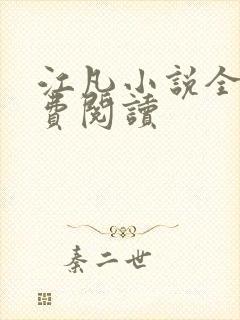 江凡小説全
費閱讀
秦二世